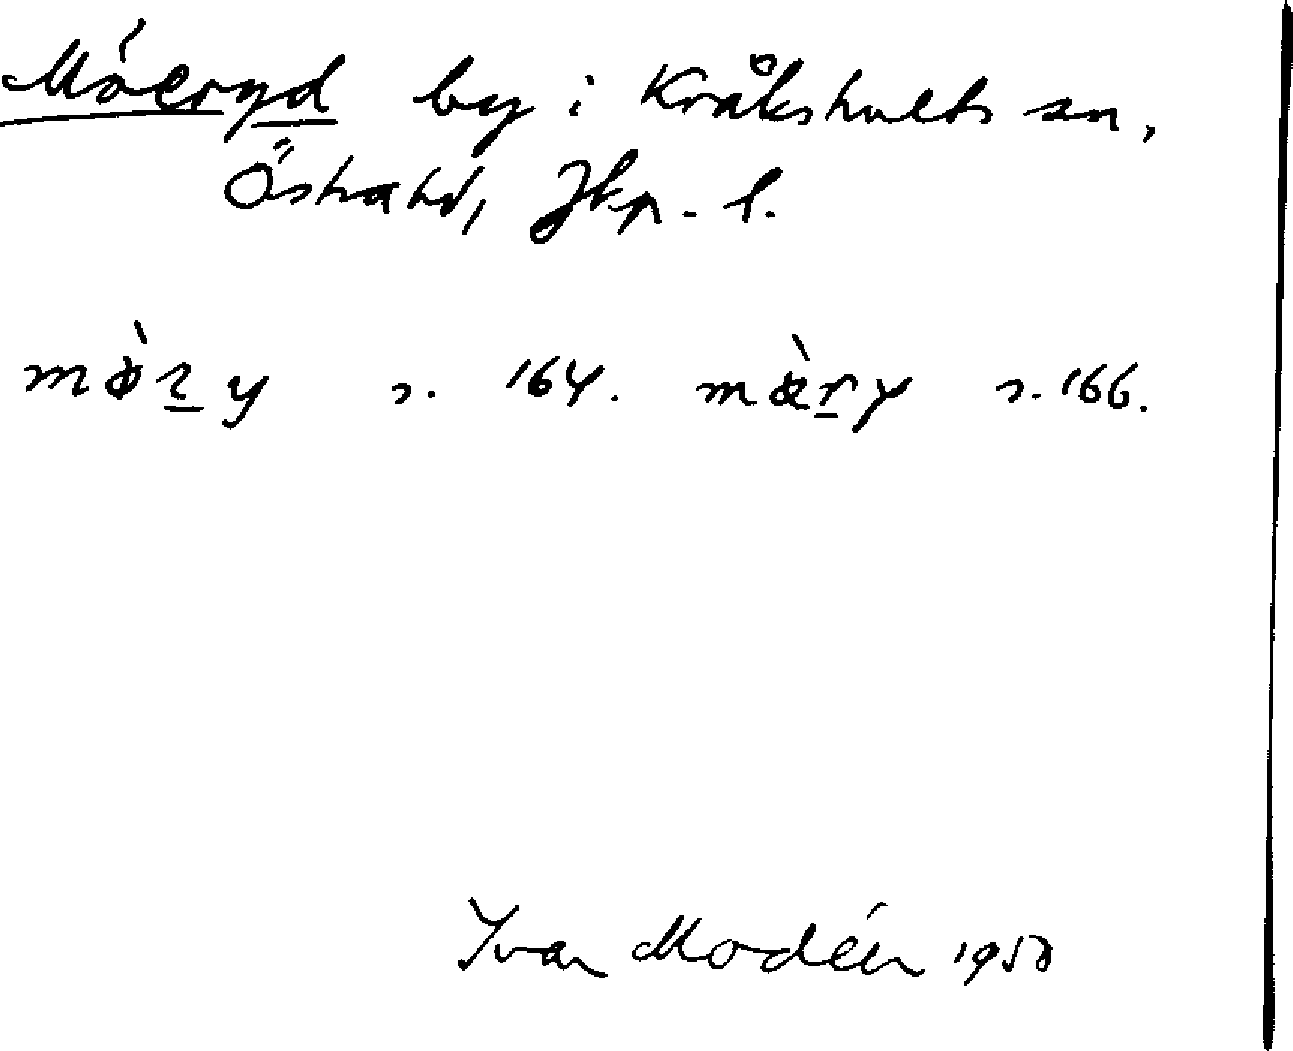 Móeryd by i Kråkshults sn,
Östra hd, Jkp. l.
s. 164. s. 166.
Ivar Modéer 1950